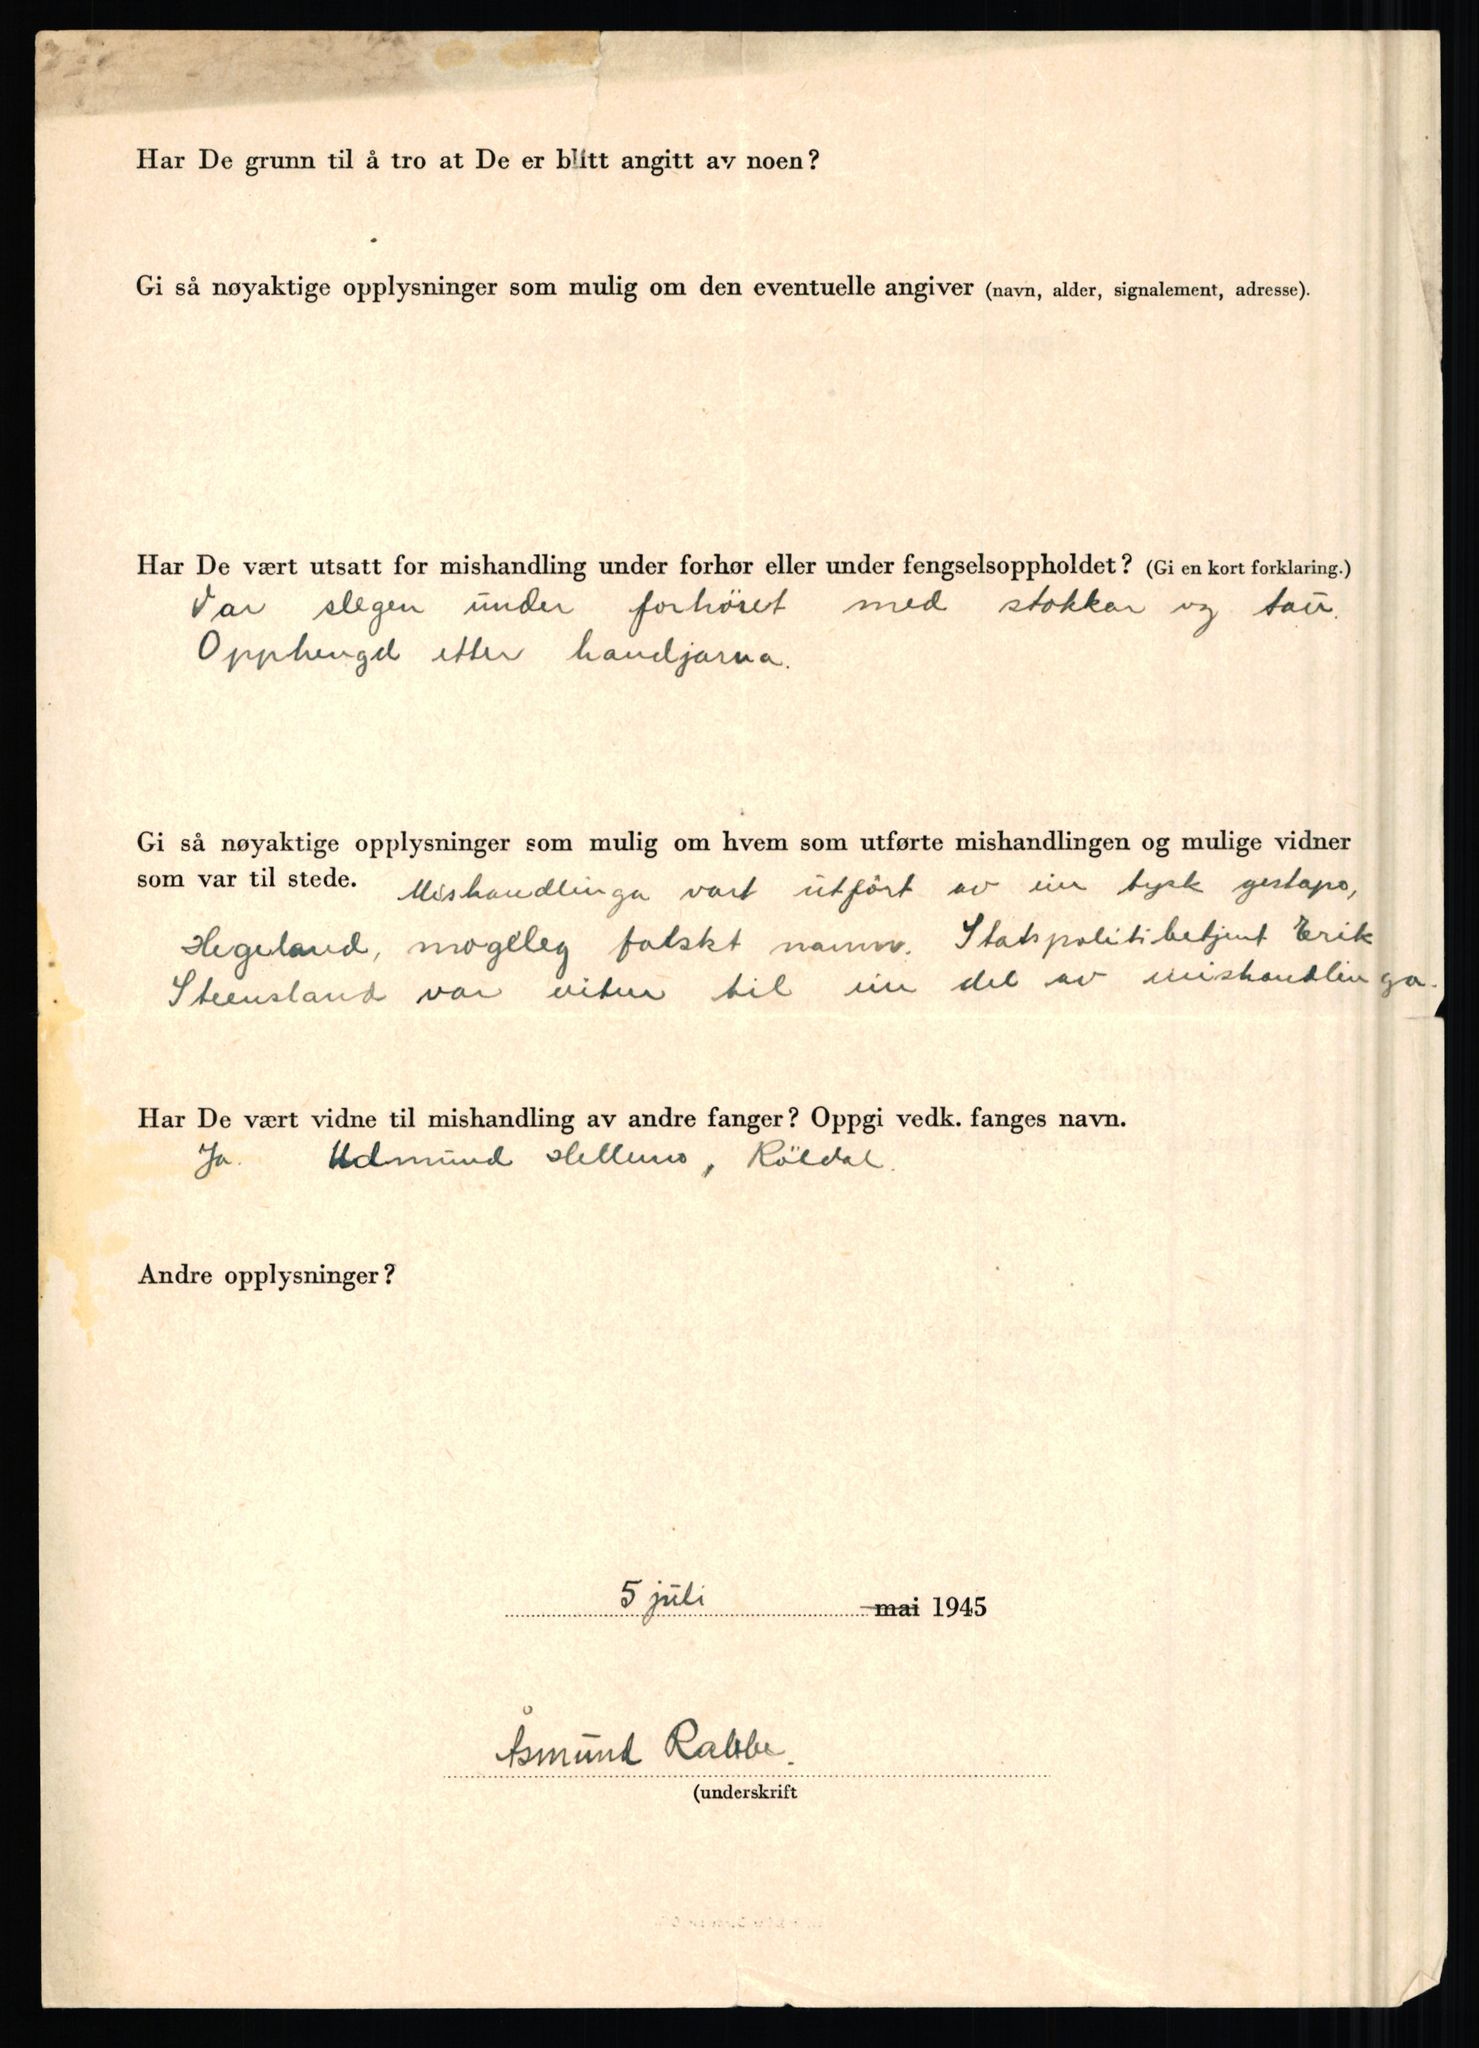 Har De grunn til å tro at De er blitt angitt av noen?
Gi så nøyaktige opplysninger som mulig om den eventuelle angiver (navn, alder, signalement, adresse).
Har De vært utsatt for mishandling under forhør eller under fengselsoppholdet? (Gi en kort forklaring.)
Var slegen under forhöret med stokkar og tau.
Opphengd etter handjarna.
Gi så nøyaktige opplysninger som mulig om hvem som utførte mishandlingen og mulige vidner
som var til stede. Mishandlinga vart utfört av ein tysk gestapo,
Hegeland, mogeleg falskt namn. Statspolitibetjent Erik
Steensland var vitne til ein del av mishandlinga.
Har De vært vidne til mishandling av andre fanger? Oppgi vedk. fanges navn.
Ja. Udmund Hellemo, Röldal.
Andre opplysninger?
5 juli mai 1945
Åsmund Rabbe.
(underskrift